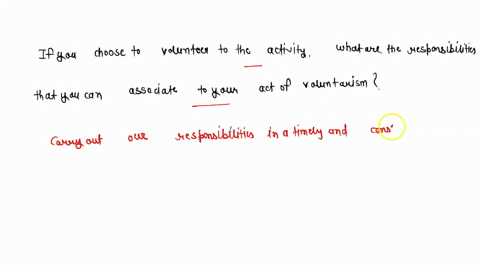 If you choose to volunteer to the activity, what are the responsibilities
that you can associate to your act of voluntarism?
Carry out our responsibilities in a timely and cons